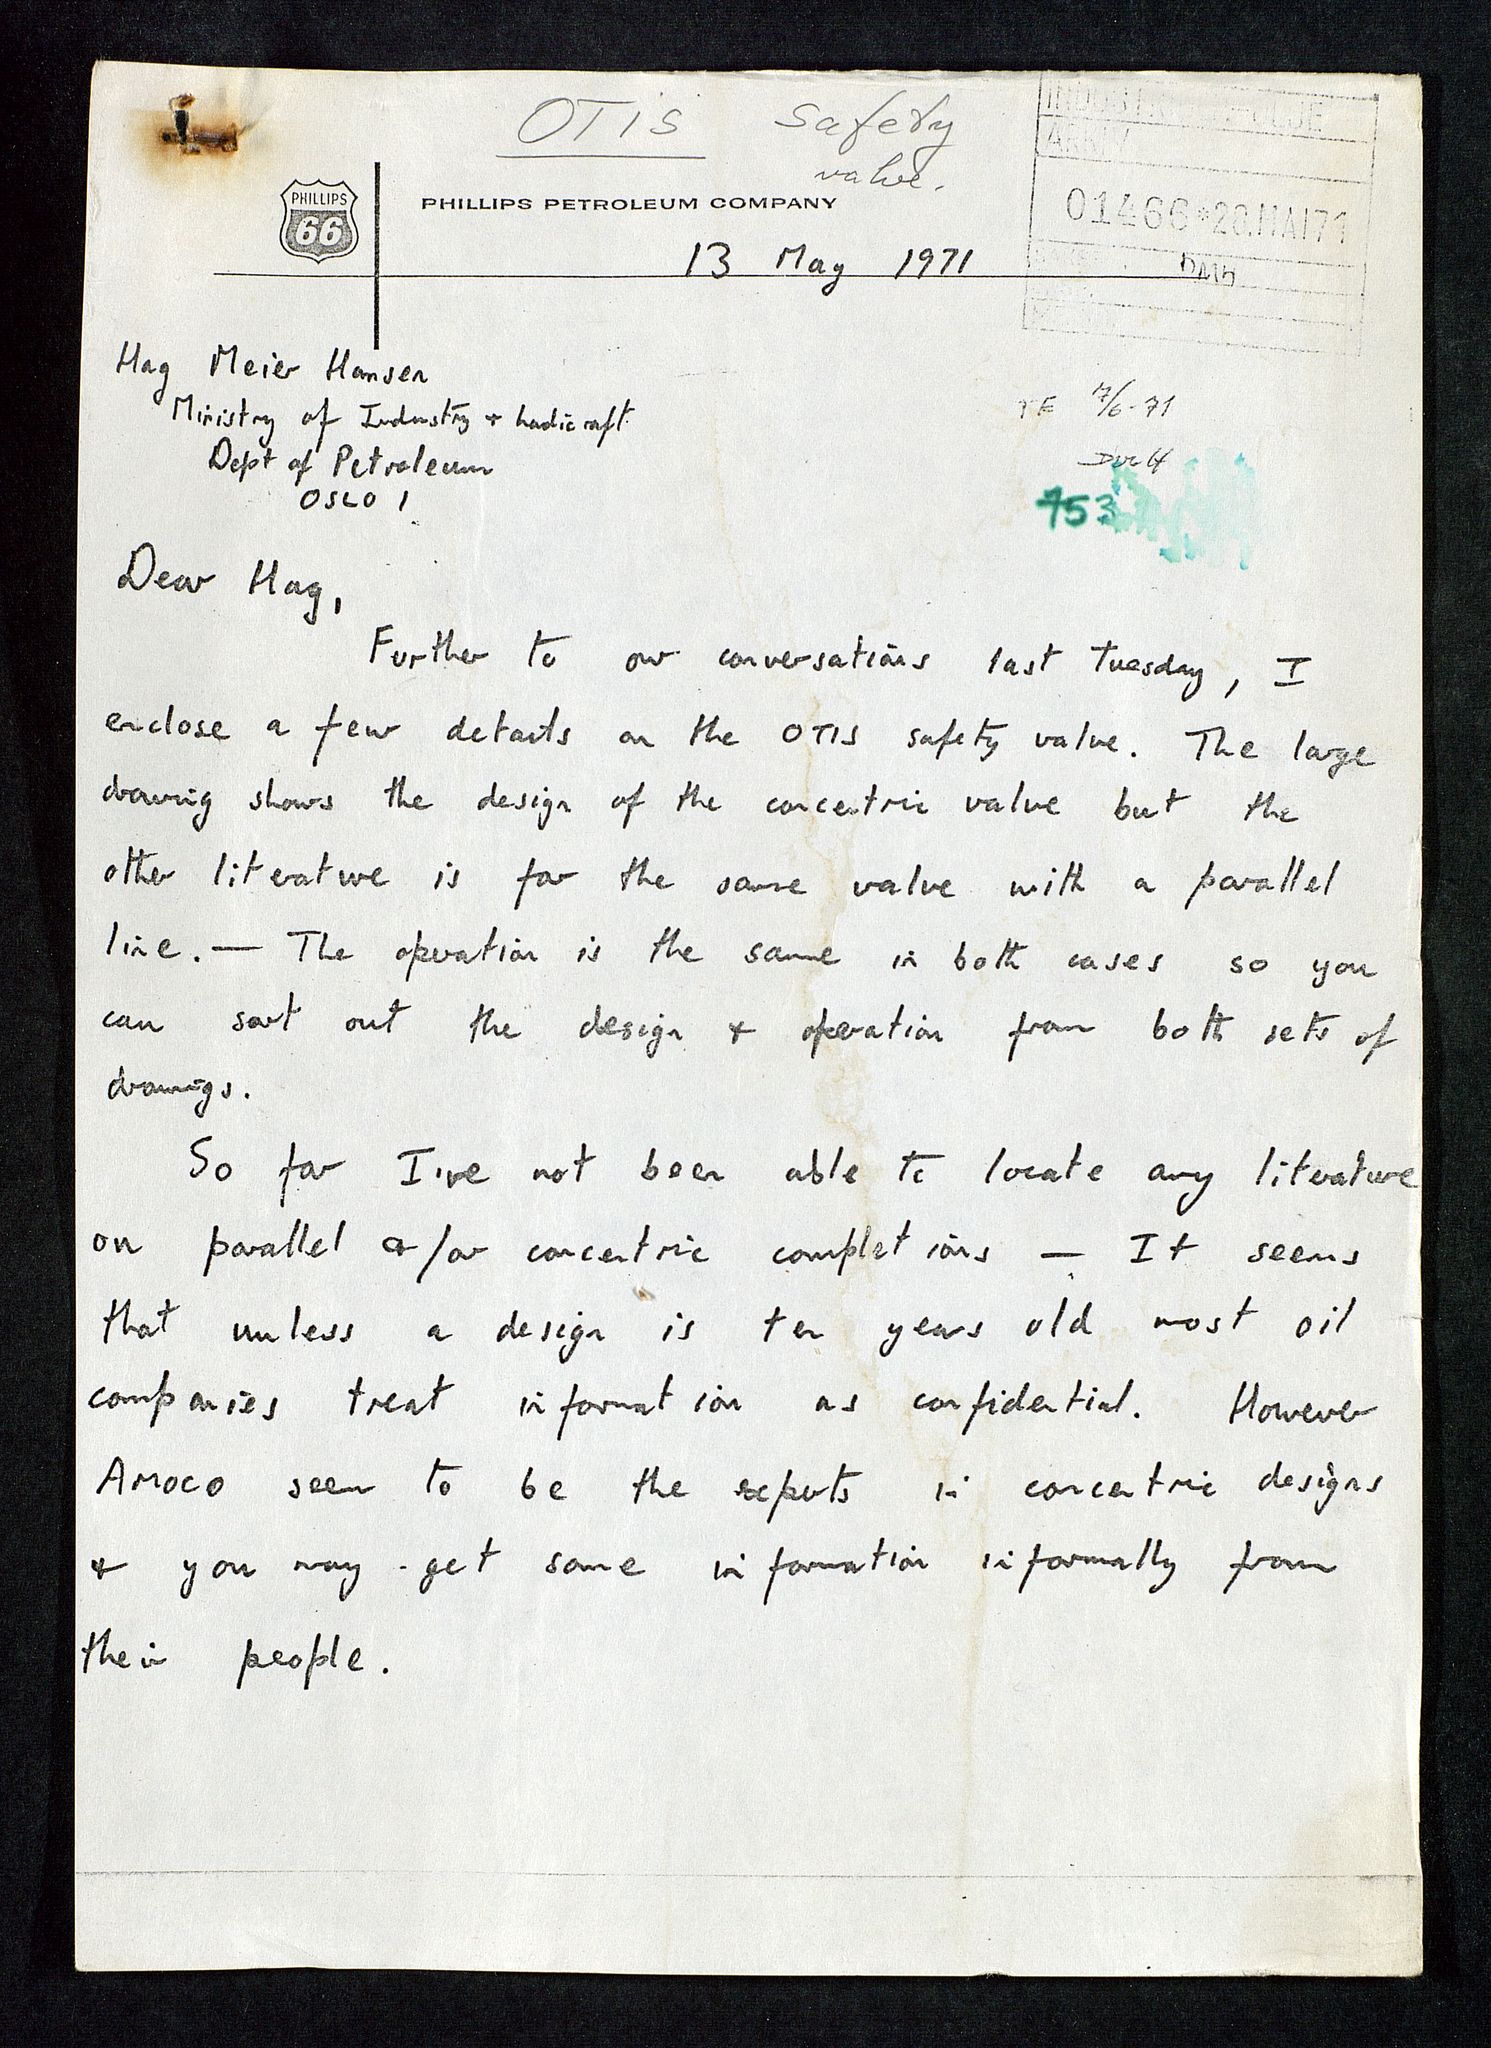 OTIS safety
valve.
PHILLIPS
66
PHILLIPS PETROLEUM COMPANY
01466*28.MAI71
13 May 1971
Hag Meier Hansen
Ministry of Industry + hadicraft
Dept of Petroleum
OSLO 1
7/6-71
753
Dear Hag,
Further to our conversations last tuesday, I
enclose a few details on the OTIS safety valve. The large
drawing shows the design of the concentric valve but the
other literature is for the same valve with a parallel
line. — The operation is the same in both cases so you
can sort out the design + operation from both sets of
drawings.
So far I've not been able to locate any literature
on parallel + /or concentric completions — It seems
that unless a design is ten years old most oil
companies treat information as confidential. However
AMOCO seem to be the experts in concentric designs
+ you may get some information informally from
their people.